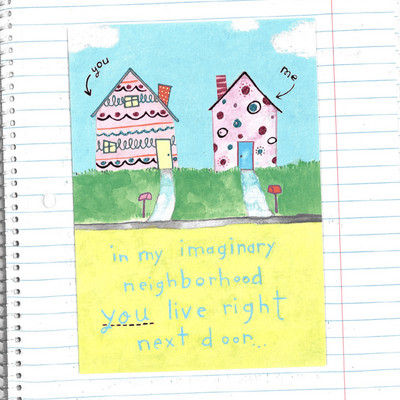 you
me
in my imaginary
neighborhood
you live right
next door...